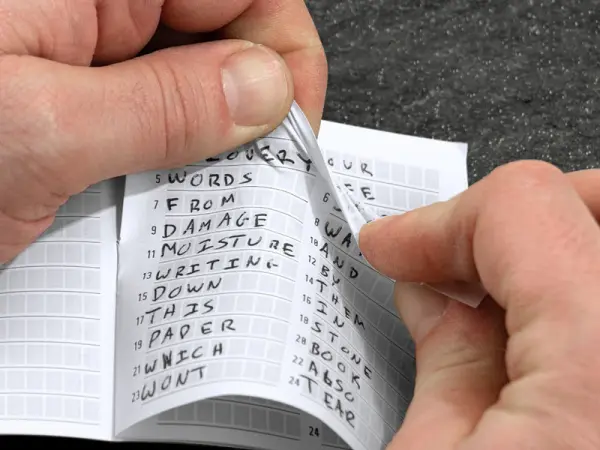 OVERY OUR
5 WORDS 6
7 FROM 8 WA
9 DAMAGE 10 AND
11 MOISTURE 12 BY
13 WRITING 14 THEM
15 DOWN 16 IN
17 THIS 18 STONE
19 PAPER 20 BOOK
21 WHICH 22 ABSO
23 WONT 24 TEAR
24